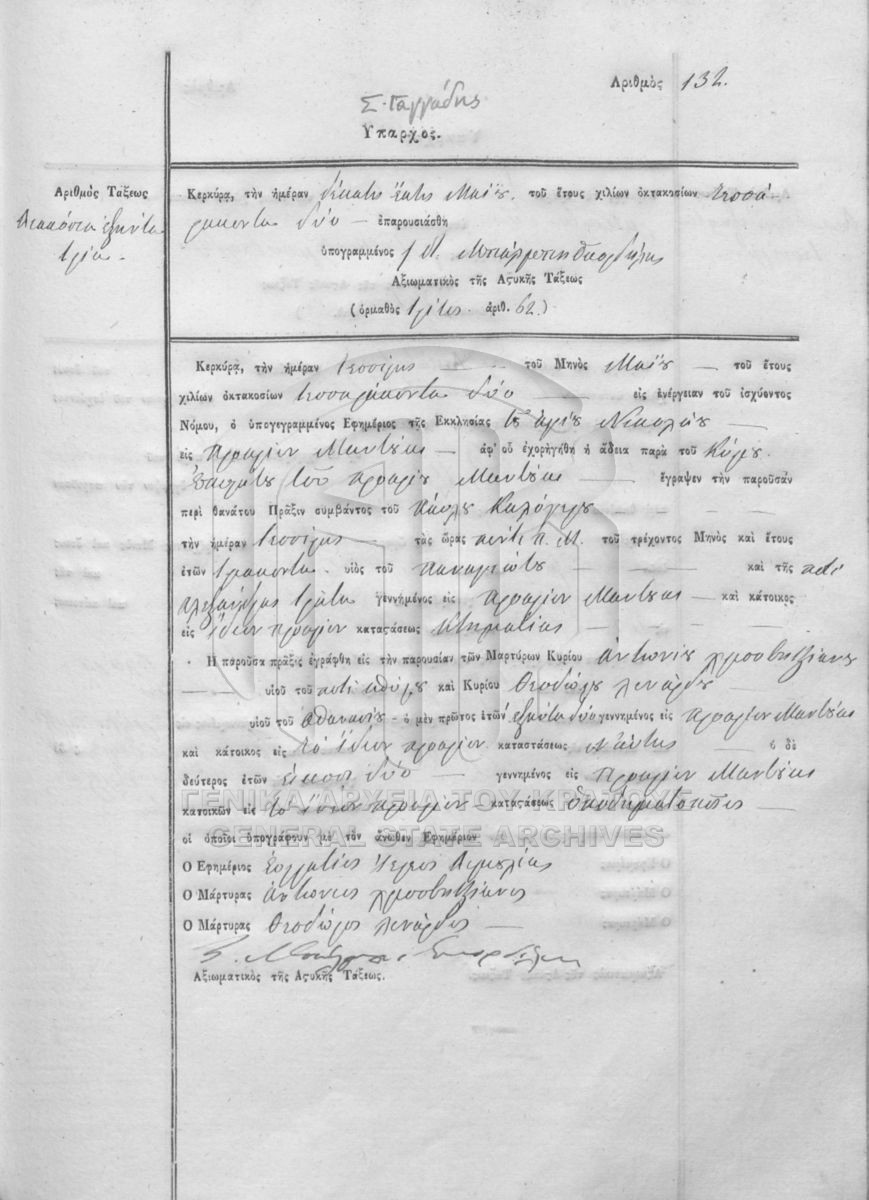 Αριθμὸς 132.
Σ. Γαγγάδης
Υπαρχος.
Αριθμὸς Τάξεως
Διακόσια ἑξῆντα
τρία -
Κερκύρᾳ, τὴν ἡμέραν δεκάτη ἕκτη Μαΐου. τοῦ ἔτους χιλίων ὀκτακοσίων τεσσα-
ράκοντα δύο - ἐπαρουσιάσθη
ὑπογραμμένος
Αξιωματικὸς τῆς Αϛυκῆς Τάξεως
(ὁρμαθὸς τρίτος ἀριθ. 62.)
Κερκύρᾳ, τὴν ἡμέραν τεσσάρης - τοῦ Μηνὸς Μαΐου - τοῦ ἔτους
χιλίων ὀκτακοσίων τεσσαράκοντα δύο - εἰς ἐνέργειαν τοῦ ἰσχύοντος
Νόμου, ὁ ὑπογεγραμμένος Εφημέριος τῆς Εκκλησίας τοῦ ἁγίου Νικολάου -
εἰς προάϛιον Μαντούκι - ἀφ' οὗ ἐχορηγήθη ἡ ἄδεια παρὰ τοῦ Κυρίου
ἐπιϛάτου τοῦ προαϛίου Μαντούκι - ἔγραψεν τὴν παροῦσαν
περὶ θανάτου Πρᾶξιν συμβάντος τοῦ Παύλου Καλόγερου - - - -
τὴν ἡμέραν τεσσάρης - τὰς ὥρας πέντε π. Μ. τοῦ τρέχοντος Μηνὸς καὶ ἔτους
ἐτῶν τριάκοντα - υἱὸς τοῦ Παναγιώτου - - - καὶ τῆς ποτὲ
γεννημένος εἰς προάϛιον Μαντούκι - καὶ κάτοικος
εἰς ἴδιον προάϛιον καταϛάσεως κτηματίας - - - -
Η παροῦσα πρᾶξις ἐγράφθη εἰς τὴν παρουσίαν τῶν Μαρτύρων Κυρίου Ἀντωνίου
- - υἱοῦ τοῦ ποτὲ καὶ Κυρίου Θεοδώρου Λενάρδου -
υἱοῦ τοῦ Ἀθανασίου - ὁ μὲν πρῶτος ἐτῶν ἑξῆντα δύο γεννημένος εἰς προάϛιον Μαντούκι
καὶ κάτοικος εἰς τὸ ἴδιον προάϛιον καταϛάσεως ναύτης - ὁ δὲ
δεύτερος ἐτῶν εἴκοσι δύο - γεννημένος εἰς προάϛιον Μαντούκι
κατοικῶν εἰς τὸ ἴδιον προάϛιον καταϛάσεως ὑποδηματοποιός -
οἱ ὁποῖοι ὑπογράφουν μὲ τὸν ἄνωθεν Εφημέριον
Ο Εφημέριος
Ο Μάρτυρας Ἀντώνιος
Ο Μάρτυρας Θεόδωρος Λενάρδος -
Αξιωματικὸς τῆς Αϛυκῆς Τάξεως.
ΓΕΝΙΚΑ ΑΡΧΕΙΑ ΤΟΥ ΚΡΑΤΟΥΣ
GENERAL STATE ARCHIVES